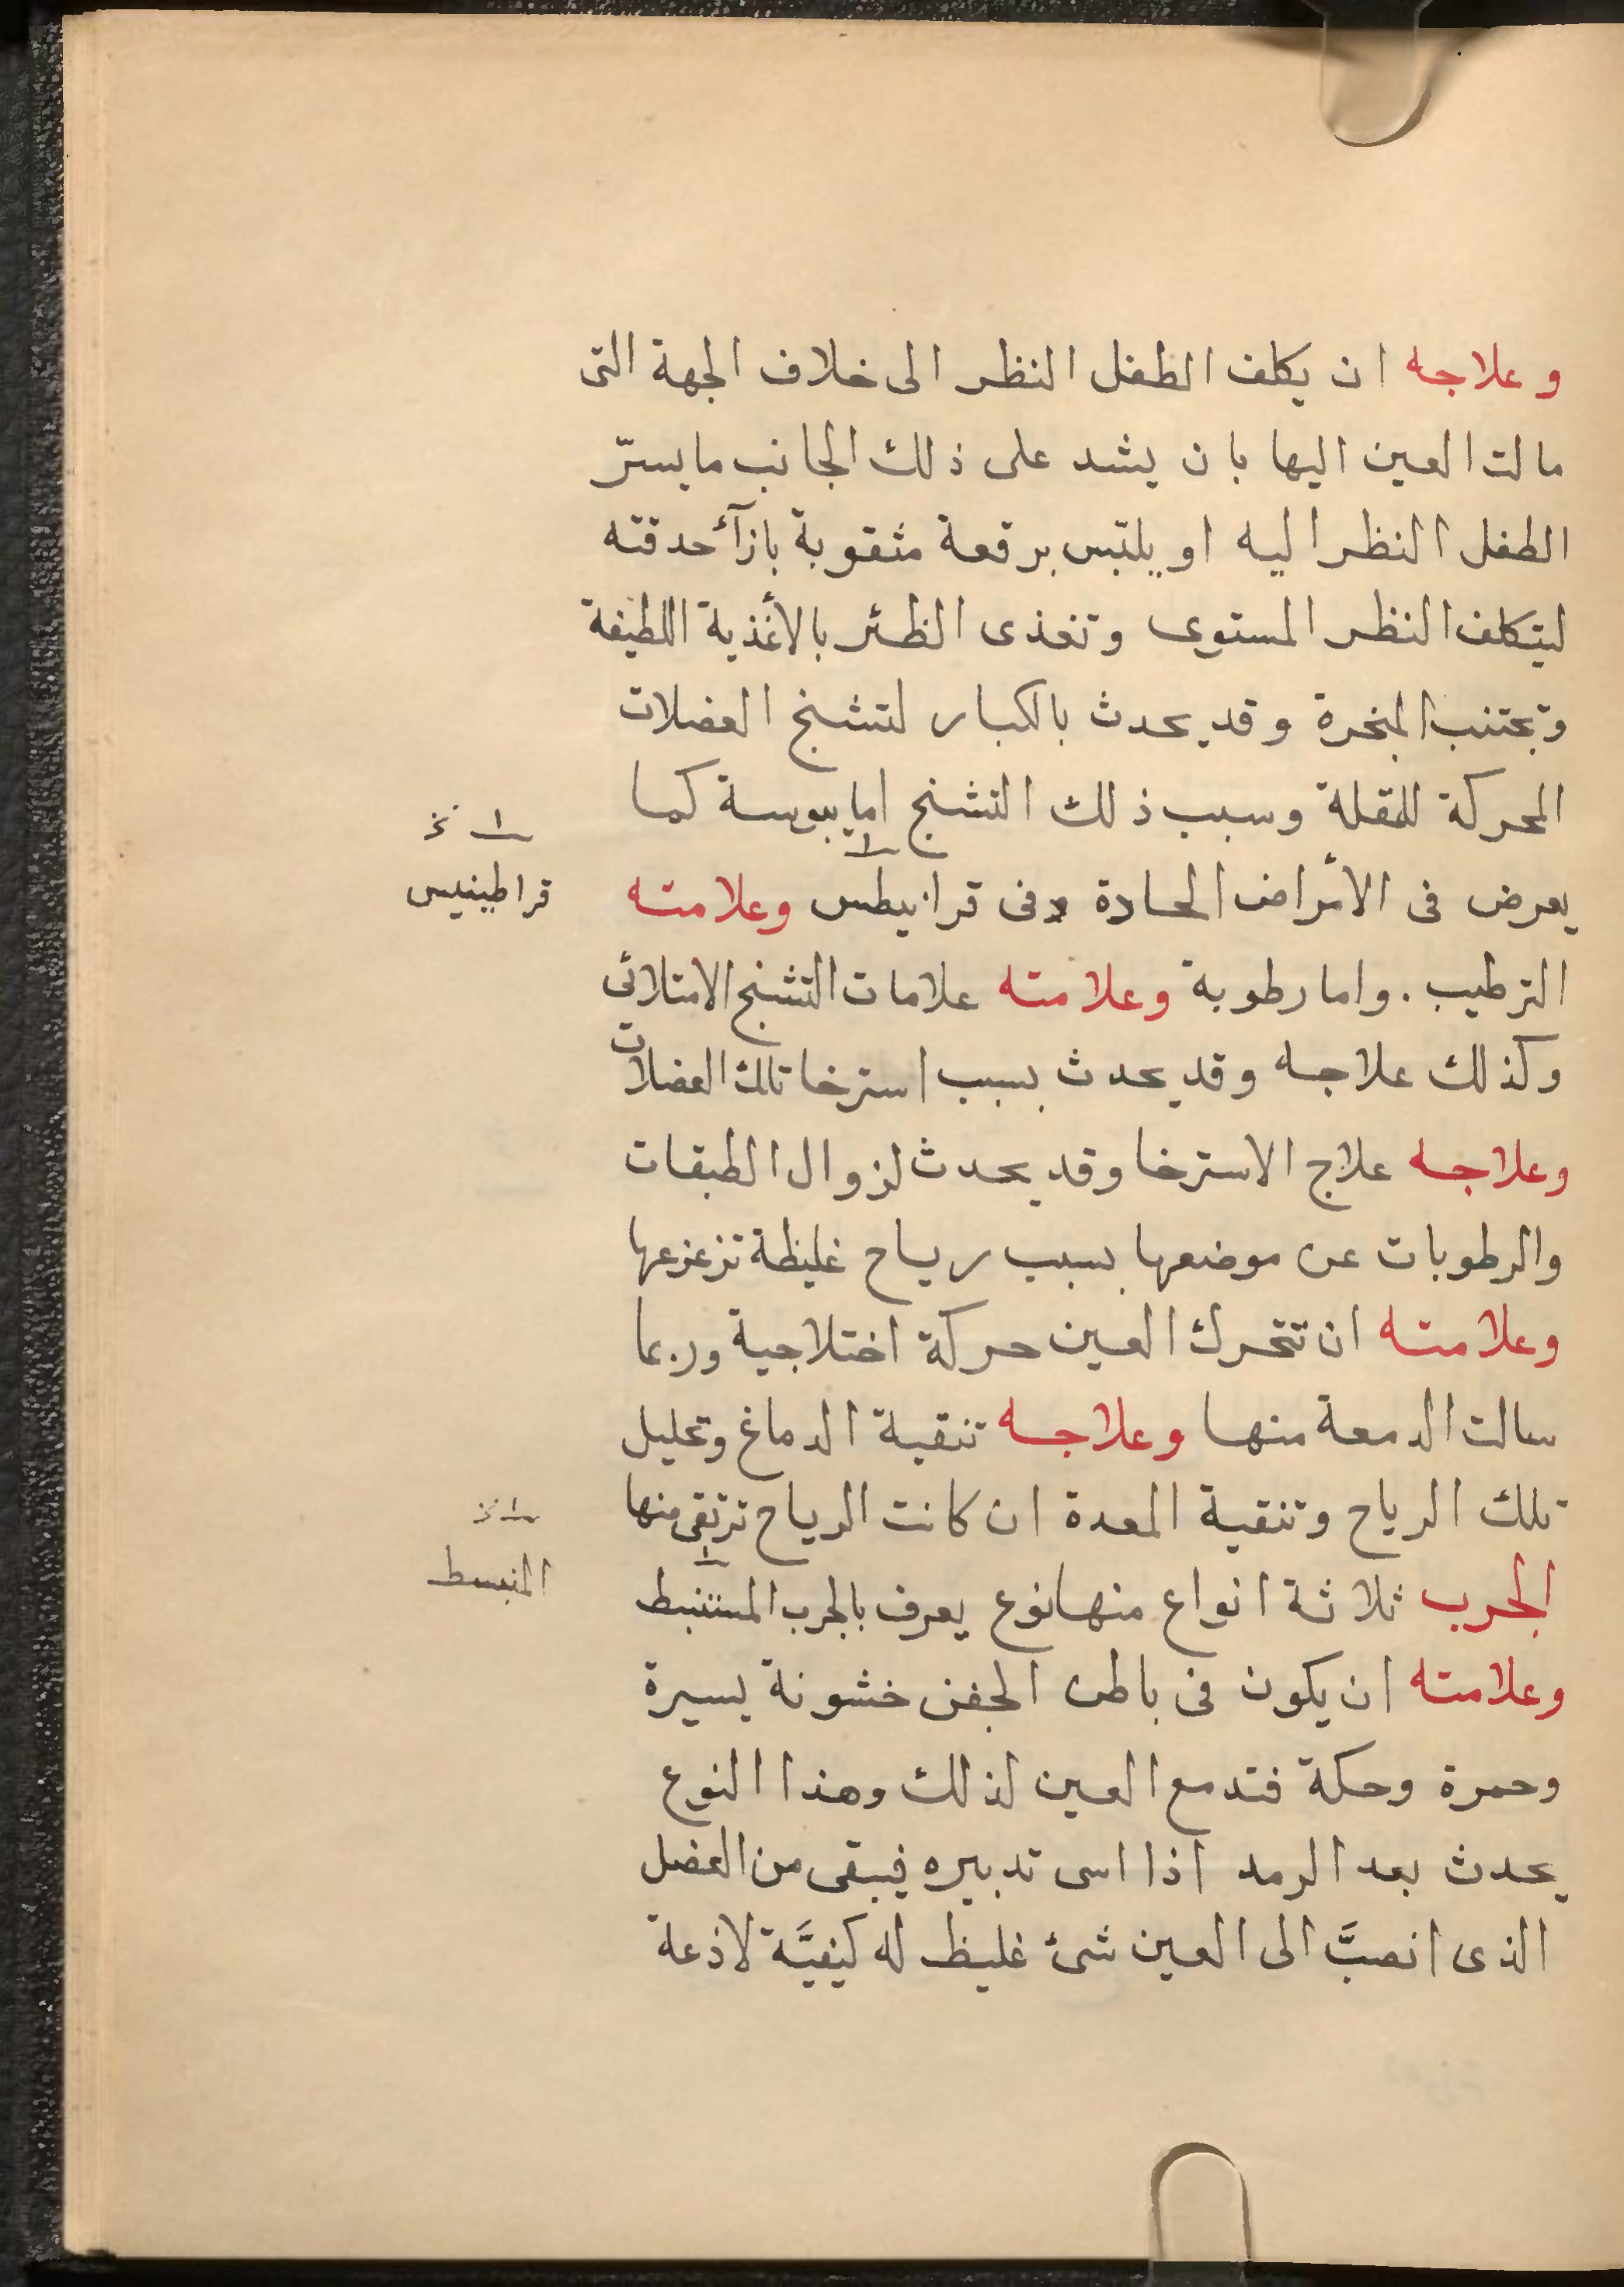 وعلاجه ان يكلف الطفل النظر الى خلاف الجهة التى
مالت العين اليها بان يشد على ذلك الجانب ما يسترّ
الطفل النظر اليه او يلبّس برقعة مثقوبة بازآء حدقته
ليتكلف النظر المستوى وتغذى الظئر بالأغذية اللطيفة
وتجتنب المبخرة وقد يحدث بالكبار لتشنج العضلات
المحركة للمقلة وسبب ذلك التشنج اما يبوسة كما
يعرض فى الأمراض الحادة وفى قرانيطس وعلامته
الترطيب . واما رطوبة وعلامته علامات التشنج الامتلائى
وكذلك علاجه وقد يحدث بسبب استرخا تلك العضلات
وعلاجه علاج الاسترخا وقد يحدث لزوال الطبقات
والرطوبات عن موضعها بسبب رياح غليظة تزعزعها
وعلامته ان تتحرك العين حركة اختلاجية وربما
سالت الدمعة منها وعلاجه تنقية الدماغ وتحليل
تلك الرياح وتنقية المعدة ان كانت الرياح ترتقى منها
الجرب ثلاثة انواع منها نوع يعرف بالجرب المستنبط
وعلامته ان يكون فى باطن الجفن خشونة يسيرة
وحمرة وحكة فتدمع العين لذلك وهذا النوع
يحدث بعد الرمد اذا اسى تدبيره فيبقى من الفضل
الذى انصبَّ الى العين شئ غليظ له كيفيَّة لاذعة
١ نخ
قراطينيس
١ نخ
المنبسط